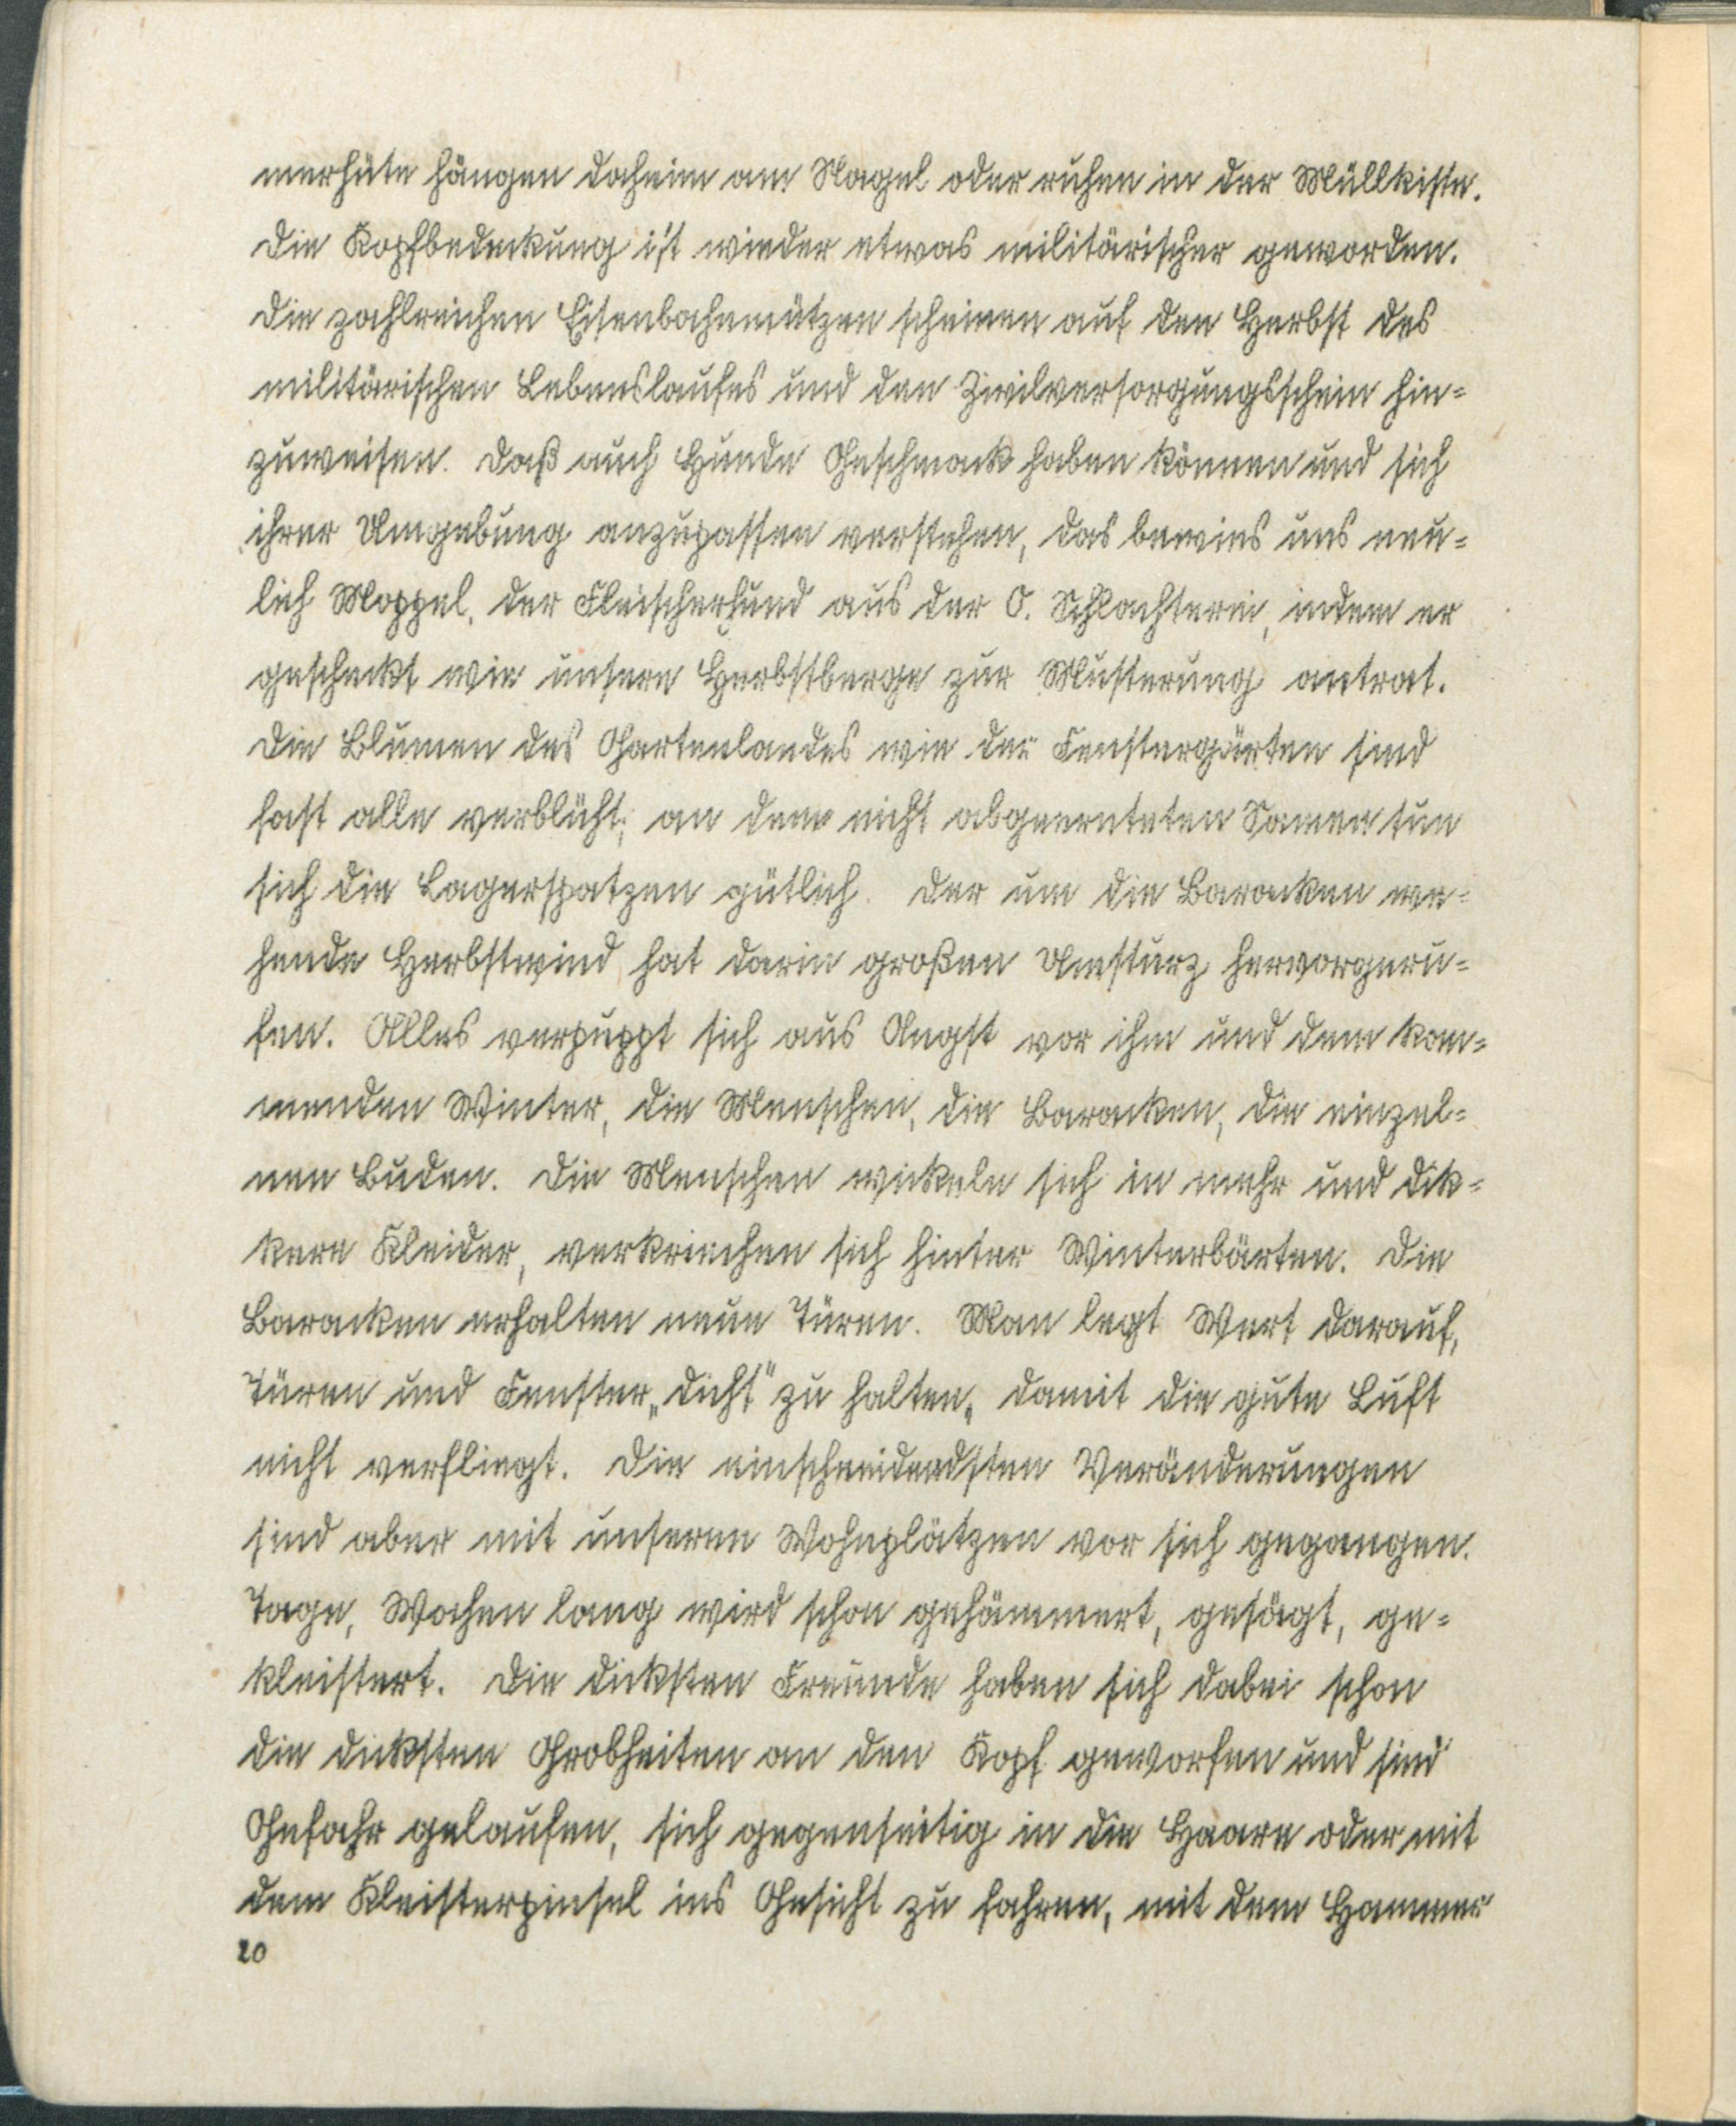 merhüte hängen daheim am Nagel oder ruhen in der Müllkiste.
Die Kopfbedeckung ist wieder etwas militärischer geworden.
Die zahlreichen Eisenbahnmützen scheinen auf den Herbst des
militärischen Lebenslaufes und den Zivilversorgungsschein hin=
zuweisen. Daß auch Hunde Geschmack haben können und sich
ihrer Umgebung anzupassen verstehen, das bewies uns neu=
lich Moppel, der Fleischerhund aus der O. Schlachterei, indem er
gescheckt wie unsere Herbstberge zur Musterung antrat.
Die Blumen des Gartenlandes wie der Fenstergärten sind
fast alle verblüht; an dem nicht abgeernteten Samen tun
sich die Lagerspatzen gütlich. Der um die Baracken we=
hende Herbstwind hat darin großen Umsturz hervorgeru=
fen. Alles verpuppt sich aus Angst vor ihm und dem kom=
menden Winter, die Menschen, die Baracken, die einzel=
nen Buden. Die Menschen wickeln sich in mehr und dik=
kere Kleider, verkriechen sich hinter Winterbärten. Die
Baracken erhalten neue Türen. Man legt Wert darauf,
Türen und Fenster „dicht“ zu halten, damit die gute Luft
nicht verfliegt. Die einschneidendsten Veränderungen
sind aber mit unseren Wohnplätzen vor sich gegangen.
Tage, Wochen lang wird schon gehämmert, gesägt, ge=
kleistert. Die dicksten Freunde haben sich dabei schon
die dicksten Grobheiten an den Kopf geworfen und sind
Gefahr gelaufen, sich gegenseitig in die Haare oder mit
dem Kleisterpinsel ins Gesicht zu fahren, mit dem Hammer
20